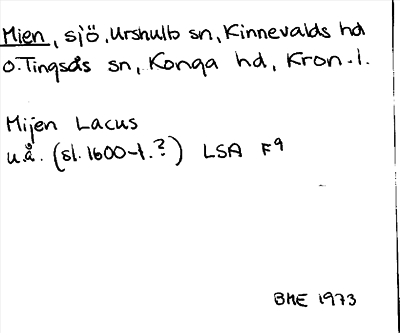 Mien, sjö, Urshulb sn, Kinnevalds hd
o. Tingsås sn, Konga hd, Kron. l.
Mijen Lacus
u.å. (sl. 1600-t.?) LSA F9
BME 1973